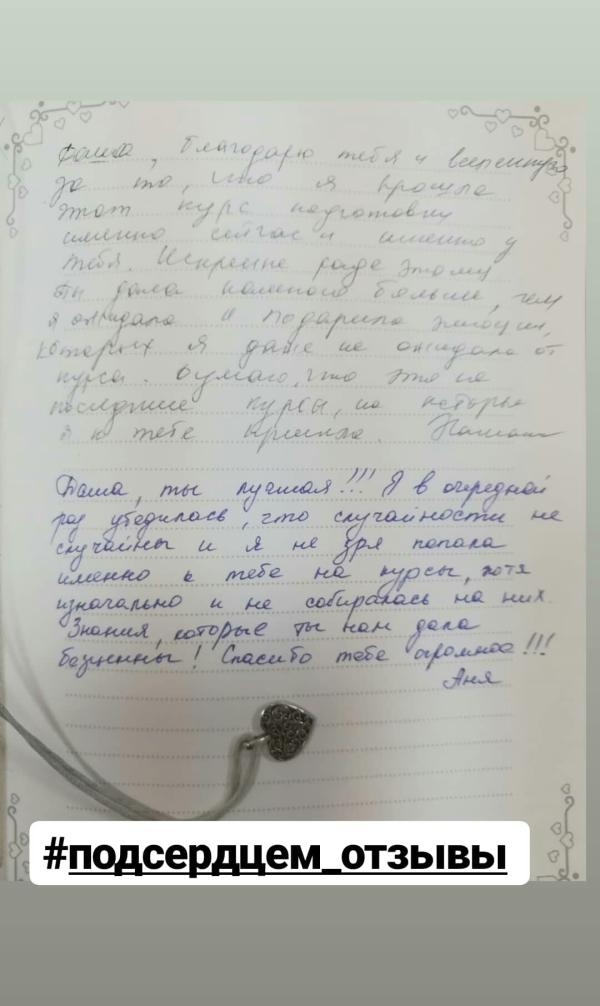 Даша, благодарю тебя и вселенную
за то, что я прошла
этот курс подготовки
именно сейчас и именно у
тебя. Искренне рада этому
ты дала намного больше, чем
я ожидала и подарила эмоции,
которых я даже не ожидала от
курса. Думаю, что это не
последние курсы, на которые
я к тебе пришла.
Даша, ты лучшая!!! Я в очередной
раз убедилась, что случайности не
случайны и я не зря попала
именно к тебе на курсы, хотя
изначально и не собиралась на них.
Знания, которые ты нам дала
безценны! Спасибо тебе огромное!!!
Аня
#подсердцем_отзывы